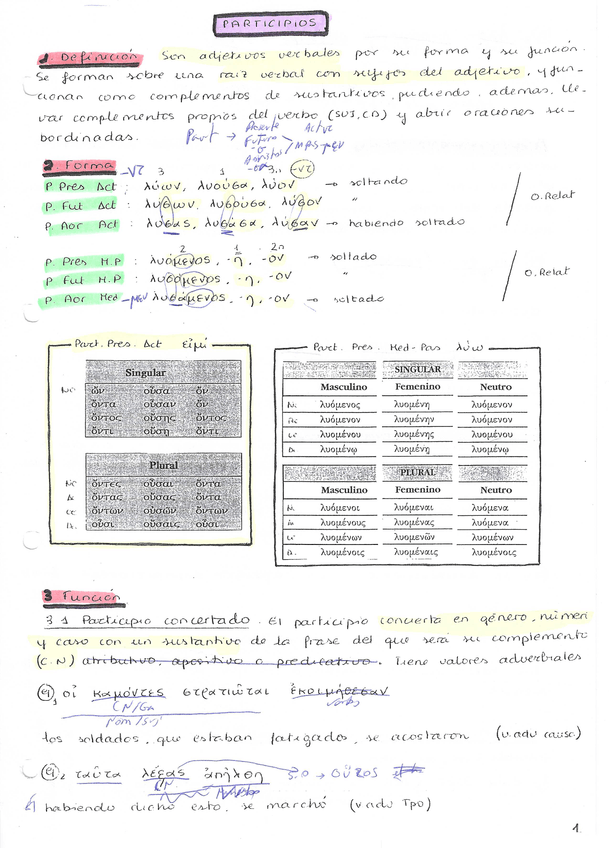 PARTICIPIOS
1. Definición Son adjetivos verbales por su forma y su función.
Se forman sobre una raiz verbal con sufijos del adjetivo, y fun-
cionan como complementos de sustantivos, pudiendo, ademas, lle-
var complementos propios del verbo (SUJ, CD) y abrir oraciones su-
bordinadas.
Part → Presente Activ
Futuro
Aoristo
2. Forma -ντ 3 1 3 -ντ
P Pres Act : λύων, λυούσα, λύον → soltando
P. Fut Act : λύσων, λυσούσα, λύσον "
P. Aor Act : λυσας, λυσασα, λύσαν → habiendo soltado
O. Relat
2 1 2n
P Pres M.P : λυόμενος, -η, -ον → soltado
P Fut M.P : λυσόμενος, -η, -ον "
P. Aor Med : λυσάμενος, -η, -ον → soltado
O. Relat
Part. Pres. Act εἰμί
Singular
No ὤν οὖσα ὄν
ὄντα οὖσαν ὄν
ὄντος οὔσης ὄντος
ὄντι οὔσῃ ὄντι
Plural
No ὄντες οὖσαι ὄντα
Ac ὄντας οὔσας ὄντα
Ge ὄντων οὐσῶν ὄντων
D. οὖσι οὔσαις οὖσι
Part. Pres. Med-Pas λύω
SINGULAR
Masculino Femenino Neutro
No λυόμενος λυομένη λυόμενον
Ac λυόμενον λυομένην λυόμενον
Ge λυομένου λυομένης λυομένου
D. λυομένῳ λυομένῃ λυομένῳ
PLURAL
Masculino Femenino Neutro
No λυόμενοι λυόμεναι λυόμενα
Ac λυομένους λυομένας λυόμενα
Ge λυομένων λυομενῶν λυομένων
D. λυομένοις λυομέναις λυομένοις
3 Función
3.1 Participio concertado. El participio concierta en género, númer
y caso con un sustantivo de la frase del que será su complemento
(C.N) atributivo, apositivo o predicativo. Tiene valores adverbiales
ej, οἱ καμόντες στρατιῶται ἐκοιμήθεσαν
CN/Ga Verbo
Nom/Suj
los soldados, que estaban fatigados, se acostaron (v. adv causa)
ej, ταῦτα λέξας ἀπήλθη S.O → OὗTOS
CN
Él habiendo dicho esto, se marchó (v adv Tpo)
1